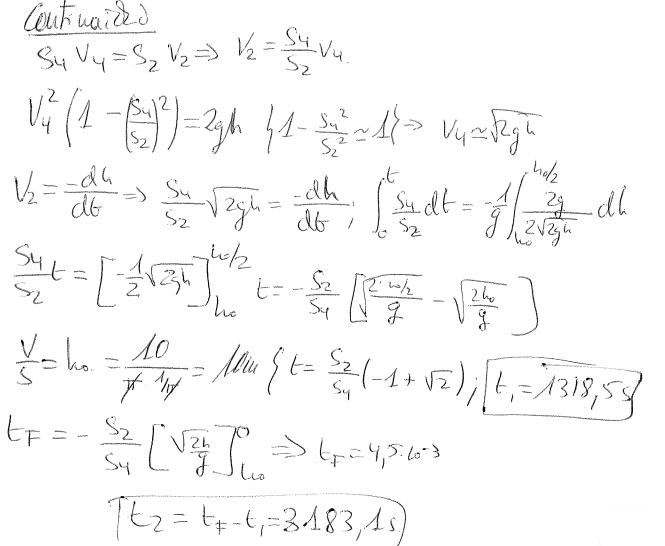 Continuidad
S4 V4 = S2 V2 ⇒ V2 = S4/S2 V4.
V4² (1 - (S4/S2)²) = 2gh {1 - S4²/S2² ≃ 1} ⇒ V4 ≃ √2gh
V2 = -dh/dt ⇒ S4/S2 √2gh = -dh/dt ; ∫₀ᵗ S4/S2 dt = -1/g ∫_{h0}^{h0/2} 2g/2√2gh dh
S4/S2 t = [-1/g √2gh]_{h0}^{h0/2} t = - S2/S4 [√(2·h0/2 / g) - √(2h0/g)]
V/S = h0. = 10/(π · 1/π) = 10m { t = S2/S4 (-1 + √2) ; t₁ = 1318,5s
tF = - S2/S4 [√(2h/g)]_{h0}^{0} ⇒ tF = 4,5·10^3
t2 = tF - t₁ = 3183,1s